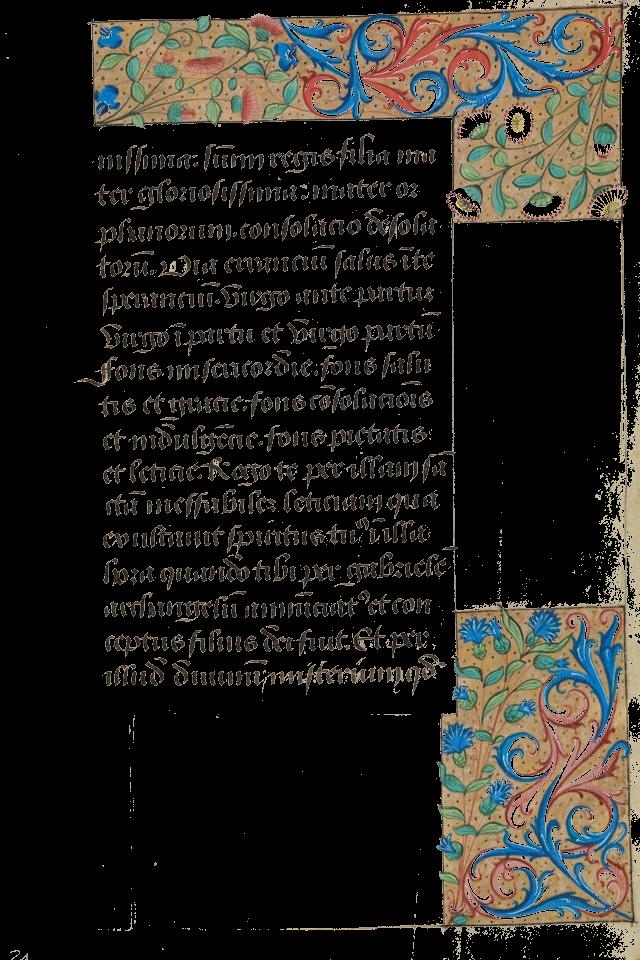 nissima: sumi regis filia ma
ter gloriosissima: mater or
phanorum. consolacio desola
torū. Via erranciū salus ī te
speranciū. Virgo ante partū
Virgo ī partu et virgo partū
Fons misericordie. fons salu
tis et gracie. fons cōsolaciōis
et indulgēcie. fons pietatis
et leticie. Rogo te per illam sā
ctā ineffabilez leticiam qua
exultauit spiritus tuꝰ ī illa
hora quando tibi per gabrielē
archangelū annūciatꝰ et con
ceptus filius dei fuit. Et per
illud diuinū misterium qd̄